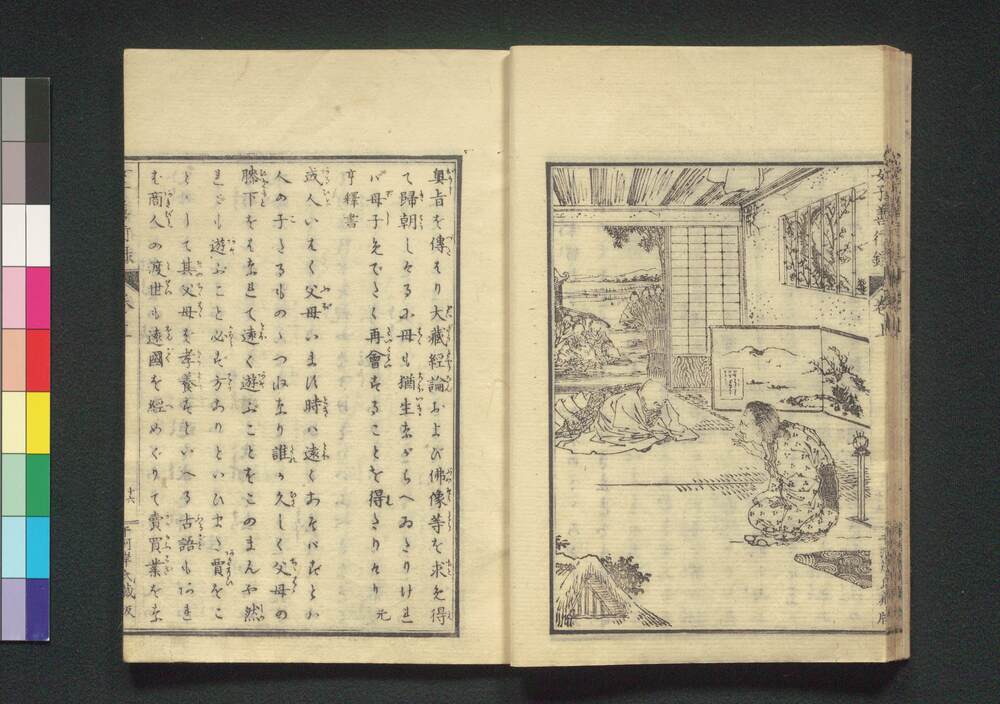 孝子善行録
奥旨を傳はり大藏經論および佛像等を求め得
て歸朝しけるに母も猶生ながらへゐたりけれ
バ母子めでたく再會することを得たりけり 元
亨釋書
或人いはく父母います時ハ遠くあそバずとハ
人の子たるものゝつねなり誰か久しく父母の
膝下をはなれて遠く遊ぶことをこのまんや然
れども遊ぶこと必ず方ありといひまた賈をこ
とゝして其父母を孝養すといへる古語もあれ
む商人の渡世も遠國を經めぐりて賣買業をな
十六